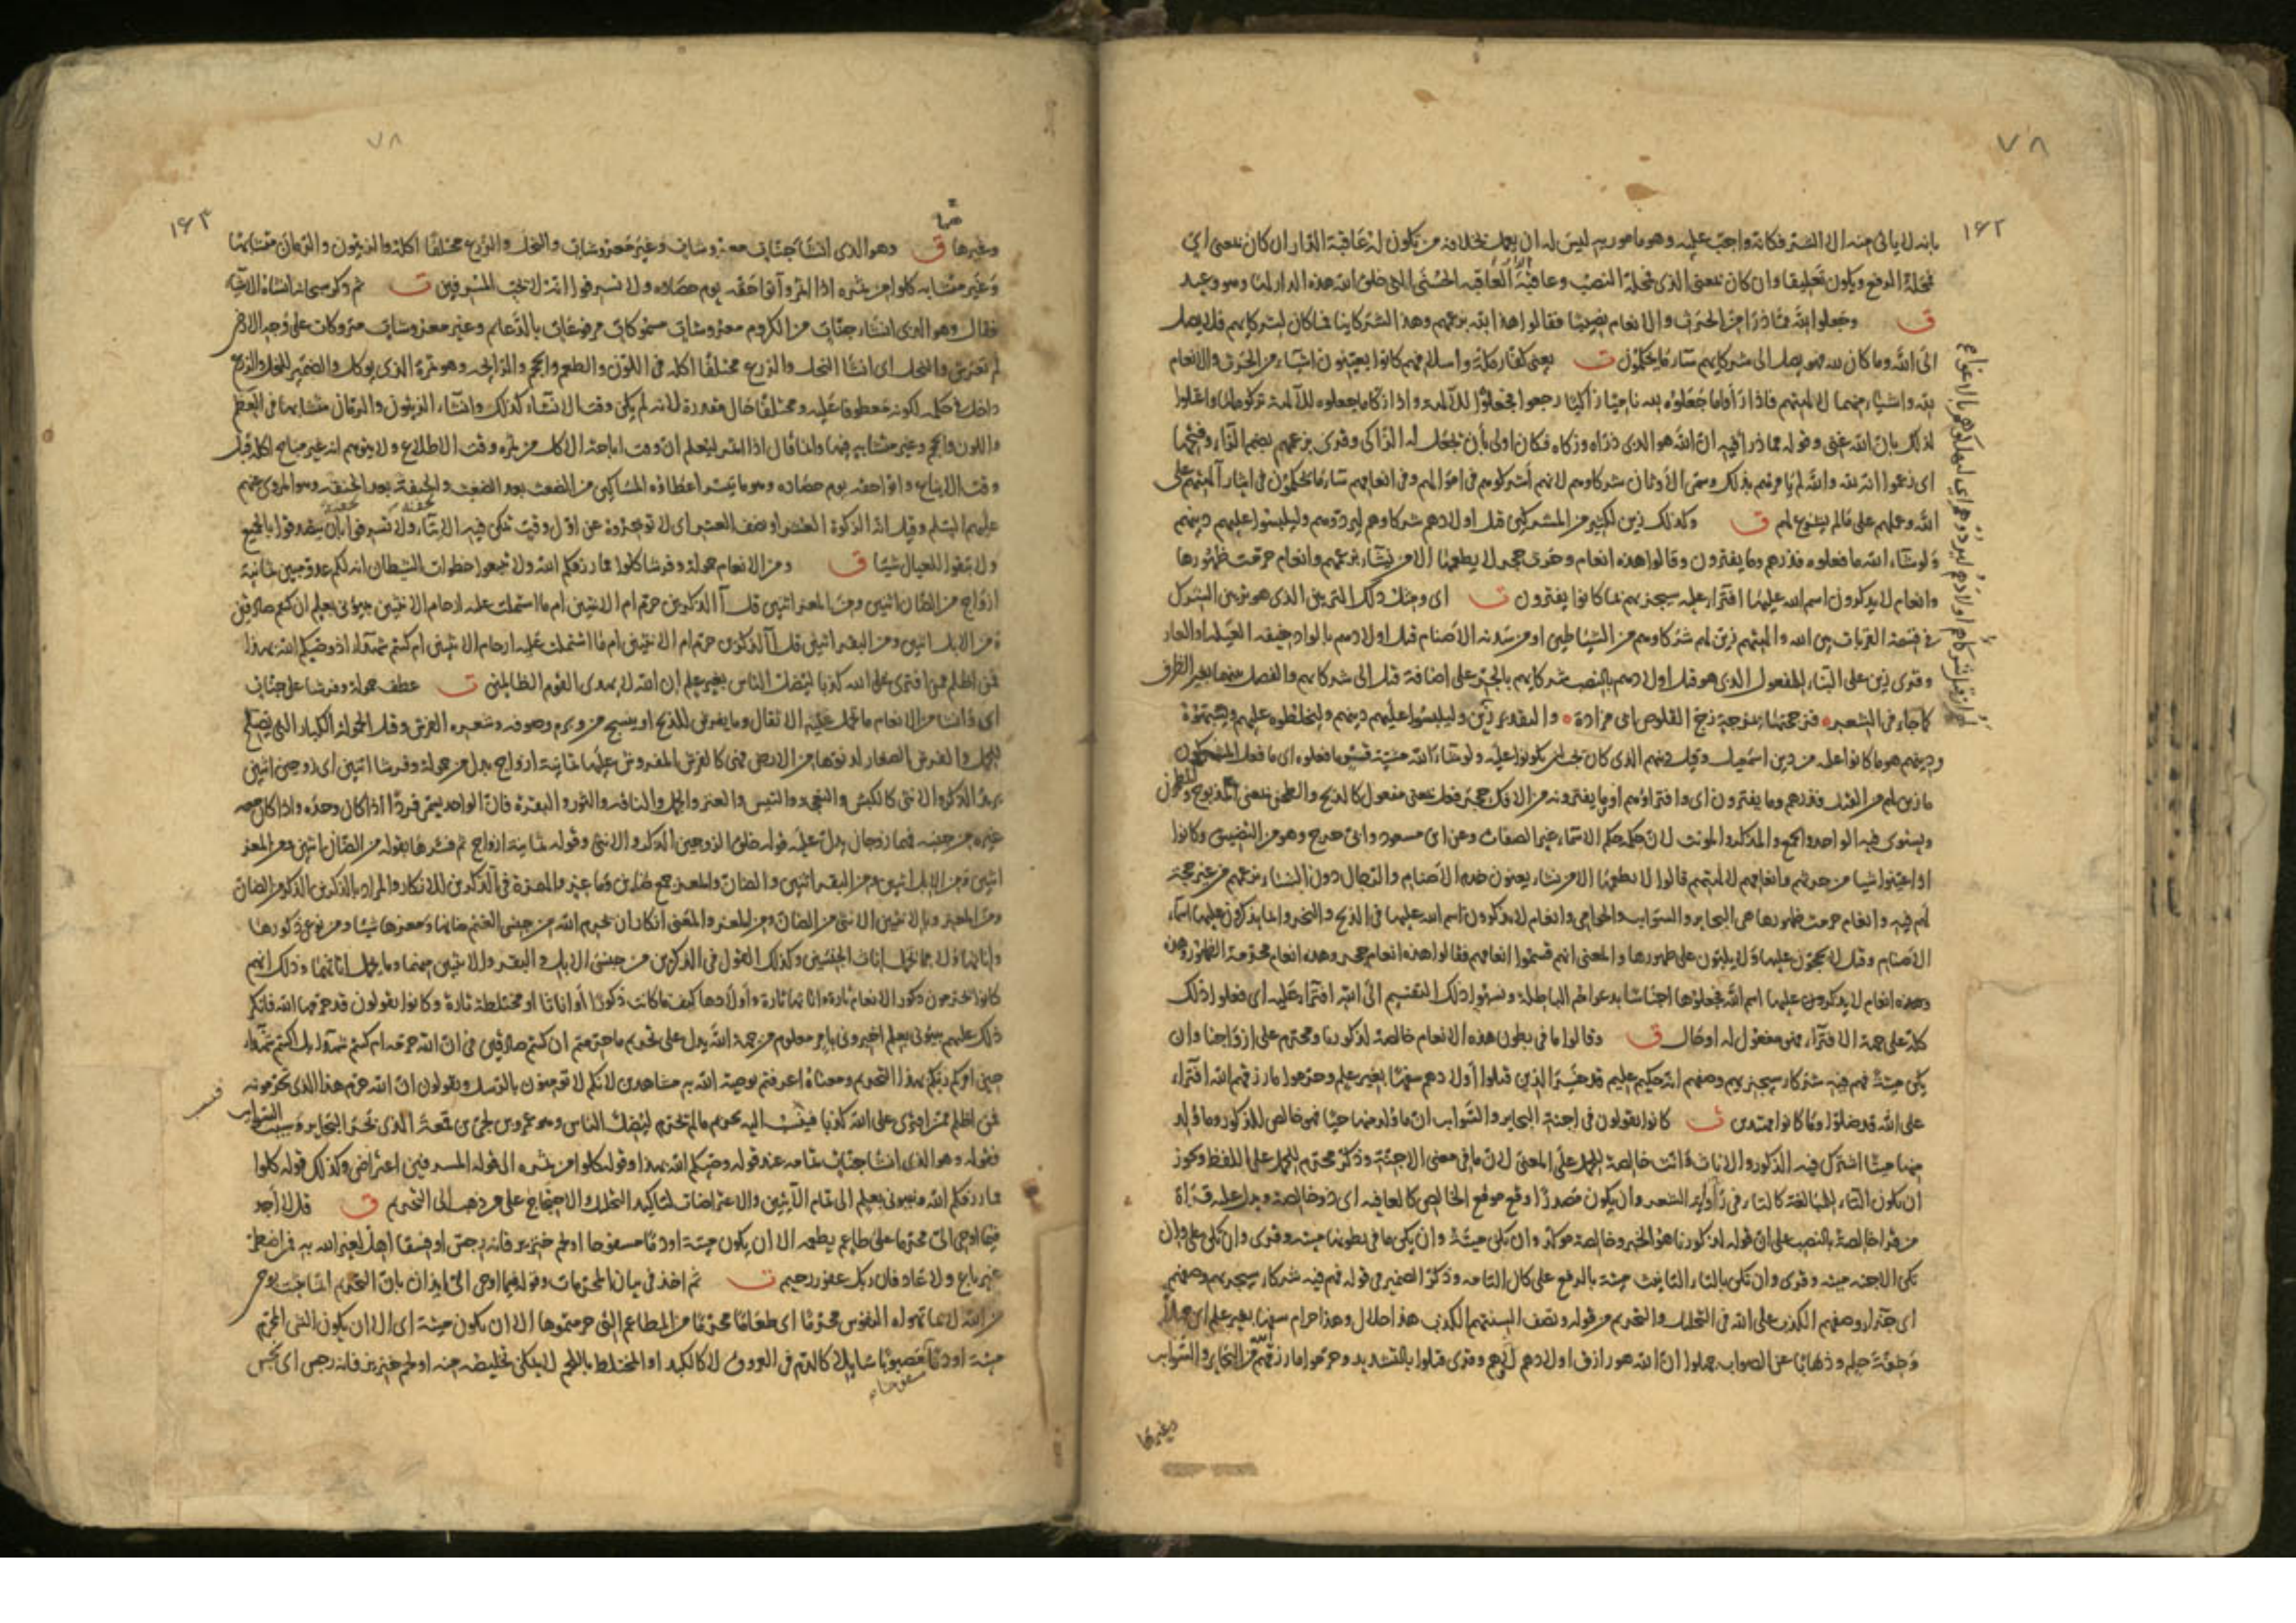 ٧٨
١٤٢
بانه لا ياتى منه الا الشر فكانه واجب عليه وهو مامور به ليس له ان يعمل بخلافه من يكون له عاقبة الدار ان كان بمعنى اى
فمحله الرفع ويكون تعليقا وان كان بمعنى الذى فمحله النصب وعاقبة الدار العاقبة الحسنى التى خلق الله هذه الدار لها وهو وعيد
ق وجعلوا لله مما ذرا من الحرث والانعام نصيبا فقالوا هذا لله بزعمهم وهذا لشركاينا فما كان لشركايهم فلا يصل
الى الله وما كان لله فهو يصل الى شركايهم ساء ما يحكمون ت يعنى كفار مكة واسلافهم كانوا يعينون اشياء من الحرث والانعام
لله واشياء منهما لالهتهم فاذا راوا ما جعلوه لله ناميا زاكيا رجعوا فجعلوا للآلهة واذا زكا ما جعلوه للآلهة تركوه لها واعتلوا
لذلك بان الله غنى وقوله مما ذرا فيه ان الله هو الذى ذراه وزكاه فكان اولى بان يجعل له الزاكى وقرى بزعمهم بضم الزاء وفتحها
اى زعموا انه لله والله لم يامرهم بذلك وسمى الاوثان شركاوهم لانهم اشركوهم فى اموالهم وفى انعامهم ساء ما يحكمون فى ايثار آلهتهم على
الله وعملهم على ما لم يشرع لهم ق وكذلك زين لكثير من المشركين قتل اولادهم شركاوهم ليردوهم وليلبسوا عليهم دينهم
ولو شاء الله ما فعلوه فذرهم وما يفترون وقالوا هذه انعام وحرث حجر لا يطعمها الا من نشاء بزعمهم وانعام حرمت ظهورها
وانعام لا يذكرون اسم الله عليها افتراء عليه سيجزيهم بما كانوا يفترون ت اى ومثل ذلك التزيين الذى هو تزيين الشرك
فى قسمة القربات بين الله والهتهم زين لهم شركاوهم من الشياطين او من سدنة الاصنام قتل اولادهم بالواد خيفة العيلة او العار
وقرى زين على البناء للمفعول الذى هو قتل اولادهم بالنصب شركايهم بالجر على اضافة قتل الى شركايهم والفصل بينهما بغير الظرف
كما جاء فى الشعر فزججتها بمزجة زج القلوص ابى مزادة والتقدير زين وليلبسوا عليهم دينهم وليخلطوه عليهم ويشبهوه
ودينهم هو ما كانوا عليه من دين اسمعيل وقيل دينهم الذى كان يجب ان يكونوا عليه ولو شاء الله مشية قسر ما فعلوه اى ما فعل المشركون
ما زين لهم من القتل فذرهم وما يفترون اى وافتراوهم او ما يفترونه من الافك حجر فعل بمعنى مفعول كالذبح والطحن بمعنى المذبوح والمطحون
ويستوى فيه الواحد والجمع والمذكر والمونث لان حكمه حكم الاسماء غير الصفات وعن ابن مسعود وابى حرج وهو من التضييق وكانوا
اذا عينوا شيا من حرثهم وانعامهم لالهتهم قالوا لا يطعمها الا من نشاء يعنون خدم الاصنام والرجال دون النساء بزعمهم من غير حجة
لهم فيه وانعام حرمت ظهورها هى البحاير والسوايب والحوامى وانعام لا يذكرون اسم الله عليها فى الذبح والنحر وانما يذكرون عليها اسماء
الاصنام وقيل لا يحجون عليها ولا يلبون على ظهورها والمعنى انهم قسموا انعامهم فقالوا هذه انعام حجر وهذه انعام محرمة الظهور وهذه
وهذه انعام لا يذكرون عليها اسم الله فجعلوها اجناسا بدعواهم الباطلة ونسبوا ذلك التقسيم الى الله افتراء عليه اى فعلوا ذلك
كله على جهة الافتراء فهى مفعول له او حال ق وقالوا ما فى بطون هذه الانعام خالصة لذكورنا ومحرم على ازواجنا وان
يكن ميتة فهم فيه شركاء سيجزيهم وصفهم انه حكيم عليم قد خسر الذين قتلوا اولادهم سفها بغير علم وحرموا ما رزقهم الله افتراء
على الله قد ضلوا وما كانوا مهتدين ت كانوا يقولون فى اجنة البحاير والسوايب ان ما ولد منها حيا فهو خالص للذكور وما ولد
منها ميتا اشترك فيه الذكور والاناث وانث خالصة للحمل على المعنى لان ما فى معنى الاجنة وذكر محرم للحمل على اللفظ ويجوز
ان تكون التاء للمبالغة كالتاء فى راوية الشعر وان يكون مصدرا وقع موقع الخالص كالعافية اى ذو خالصة ويدل عليه قراة
من قرا خالصة بالنصب على ان قوله لذكورنا هو الخبر وخالصة موكد وان تكن ميتة وان يكن ما فى بطونها ميتة وقرى وان تكن على وان
تكن الاجنة ميتة وقرى وان تكن بالتاء التانيث ميتة بالرفع على كان التامة وذكر الضمير فى قوله فهم فيه شركاء سيجزيهم وصفهم
اى جزاء وصفهم الكذب على الله فى التحليل والتحريم من قوله وتصف السنتهم الكذب هذا حلال وهذا حرام سفها بغير علم اى جهلا
وخفة حلم وذهابا عن الصواب جهلوا ان الله هو رازق اولادهم لا هم وقرى قتلوا بالتشديد وحرموا ما رزقهم من البحاير والسوايب
وغيرها
٧٨
١٤٣
وغيرها ق وهو الذى انشا جنات معروشات وغير معروشات والنخل والزرع مختلفا اكله والزيتون والرمان متشابها
وغير متشابه كلوا من ثمره اذا اثمر وآتوا حقه يوم حصاده ولا تسرفوا انه لا يحب المسرفين ت ثم ذكر سبحانه انشاءه الاشياء
فقال وهو الذى انشا جنات من الكروم معروشات مسموكات مرفوعات بالدعايم وغير معروشات متروكات على وجه الارض
لم تعرش والنخل اى انشا النخل والزرع مختلفا اكله فى اللون والطعم والحجم والرايحة وهو ثمره الذى يوكل والضمير للنخل والزرع
داخل فى حكمه لكونه معطوفا عليه ومختلفا حال مقدرة لانه لم يكن وقت الانشاء كذلك وانشاء الزيتون والرمان متشابها فى الطعم
واللون والحجم وغير متشابه فيها وانما قال اذا اثمر ليعلم ان وقت اباحة الاكل من ثمره وقت الاطلاع ولا يتوهم انه غير مباح اكله قبل
وقت الايناع وآتوا حقه يوم حصاده وهو ما تيسر اعطاؤه المساكين من الضغث بعد الضغث والحفنة بعد الحفنة وهو المروى عنهم
عليهم السلم وقيل انه الزكوة العشر او نصف العشر اى لا توخروه عن اول وقت يمكن فيه الايتاء ولا تسرفوا بان تتصدقوا بالجميع
ولا تبقوا للعيال شيئا ق ومن الانعام حمولة وفرشا كلوا مما رزقكم الله ولا تتبعوا خطوات الشيطان انه لكم عدو مبين ثمانية
ازواج من الضان اثنين ومن المعز اثنين قل آلذكرين حرم ام الانثيين ام ما اشتملت عليه ارحام الانثيين نبؤنى بعلم ان كنتم صادقين
ومن الابل اثنين ومن البقر اثنين قل آلذكرين حرم ام الانثيين ام ما اشتملت عليه ارحام الانثيين ام كنتم شهداء اذ وصيكم الله بهذا
فمن اظلم ممن افترى على الله كذبا ليضل الناس بغير علم ان الله لا يهدى القوم الظالمين ت عطف حمولة وفرشا على جنات
اى وانشا من الانعام ما يحمل عليه الاثقال وما يفرش للذبح او ينسج من وبره وصوفه وشعره الفرش وقيل الحمولة الكبار التى تصلح
للحمل والفرش الصغار لدنوها من الارض فهى كالفرش المفروش عليها ثمانية ازواج بدل من حمولة وفرشا اثنين اى زوجين اثنين
يريد الذكر والانثى كالكبش والنعجة والتيس والعنز والجمل والناقة والثور والبقرة فان الواحد يسمى فردا اذا كان وحده واذا كان معه
غيره من جنسه فهما زوجان يدل عليه قوله خلق الزوجين الذكر والانثى وقوله ثمانية ازواج ثم فسرها بقوله من الضان اثنين ومن المعز
اثنين ومن الابل اثنين ومن البقر اثنين والضان والمعز جمع ضاين وماعز والهمزة فى آلذكرين للانكار والمراد بالذكرين الذكر من الضان
ومن المعز وبالانثيين الانثى من الضان ومن المعز والمعنى انكار ان يحرم الله من جنس الغنم ضانها ومعزها شيئا من نوعى ذكورها
واناثها ولا مما تحمل اناث الجنسين وكذلك القول فى الذكرين من جنسى الابل والبقر والانثيين منهما وما يحمل اناثهما وذلك انهم
كانوا يحرمون ذكور الانعام تارة واناثها تارة واولادها كيف ما كانت ذكورا او اناثا او مختلطة تارة وكانوا يقولون قد حرمها الله فانكر
ذلك عليهم نبؤنى بعلم اخبرونى بامر معلوم من جهة الله يدل على تحريم ما حرمتم ان كنتم صادقين فى ان الله حرمه ام كنتم شهداء بل اكنتم شهداء
حين امركم ربكم بهذا التحريم ومعناه اعرفتم توصية الله به مشاهدين لانكم لا تومنون بالرسل وتقولون ان الله حرم هذا الذى تحرمونه
فمن اظلم ممن افترى على الله كذبا فينسب اليه تحريم ما لم يحرم ليضل الناس وهو عمرو بن لحى بن قمعة الذى بحر البحاير وسيب السوايب
فقوله وهو الذى انشا جنات تمامه عند قوله وصيكم الله بهذا وقوله كلوا من ثمره الى قوله المسرفين اعتراض وكذلك قوله كلوا
مما رزقكم الله ونبؤنى بعلم الى تمام الآيتين والاعتراضات لتاكيد التحليل والاحتجاج على من ذهب الى التحريم ق قل لا اجد
فيما اوحى الى محرما على طاعم يطعمه الا ان يكون ميتة او دما مسفوحا او لحم خنزير فانه رجس او فسقا اهل لغير الله به فمن اضطر
غير باغ ولا عاد فان ربك غفور رحيم ت ثم اخذ فى بيان المحرمات وقوله فيما اوحى الى ايذان بان التحريم انما يثبت بوحى
من الله لا بما تهواه النفوس محرما اى طعاما محرما من المطاعم التى حرمتموها الا ان يكون ميتة اى الا ان يكون الشى المحرم
ميتة او دما مصبوبا سايلا كالدم فى العروق لا كالكبد او المختلط باللحم لا يمكن تخليصه منه او لحم خنزير فانه رجس اى نجس